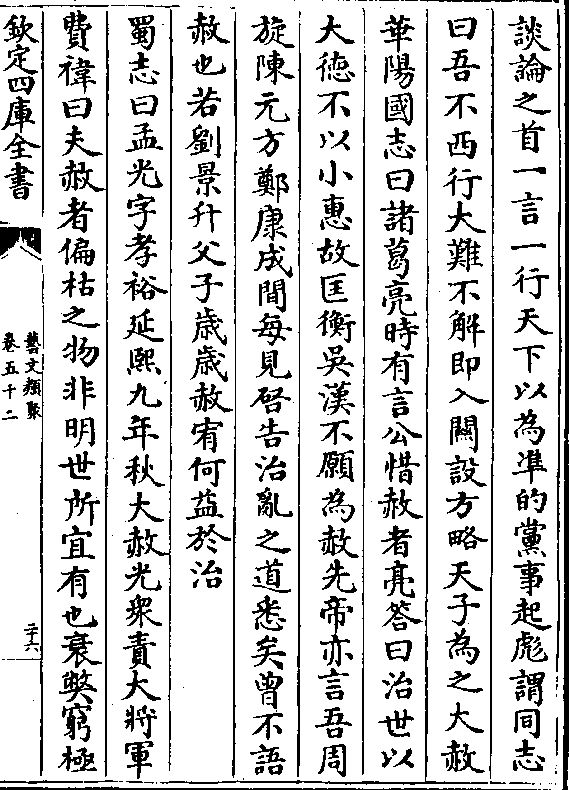 談論之首一言一行天下以為準的黨事起彪謂同志
曰吾不西行大難不解即入闗設方略天子為之大赦
華陽國志曰諸葛亮時有言公惜赦者亮答曰治世以
大徳不以小惠故匡衡吳漢不願為赦先帝亦言吾周
旋陳元方鄭康成間每見啓告治亂之道悉矣曾不語
赦也若劉景升父子歲歲赦宥何益於治
蜀志曰孟光字孝裕延熙九年秋大赦光衆責大將軍
費禕曰夫赦者偏枯之物非明世所宜有也衰獘窮極
欽定四庫全書
藝文類聚
卷五十二
二十六